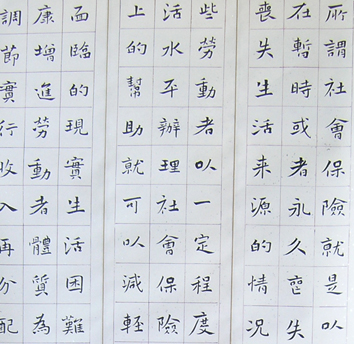 所謂社會保險就是以
在暫時或者永久喪失
喪失生活来源的情况
些勞動者以一定程度
活水平辦理社會保險
上的幫助就可以減輕
面臨的現實生活困難
康增進勞動者體質為
調節實行收入再分配